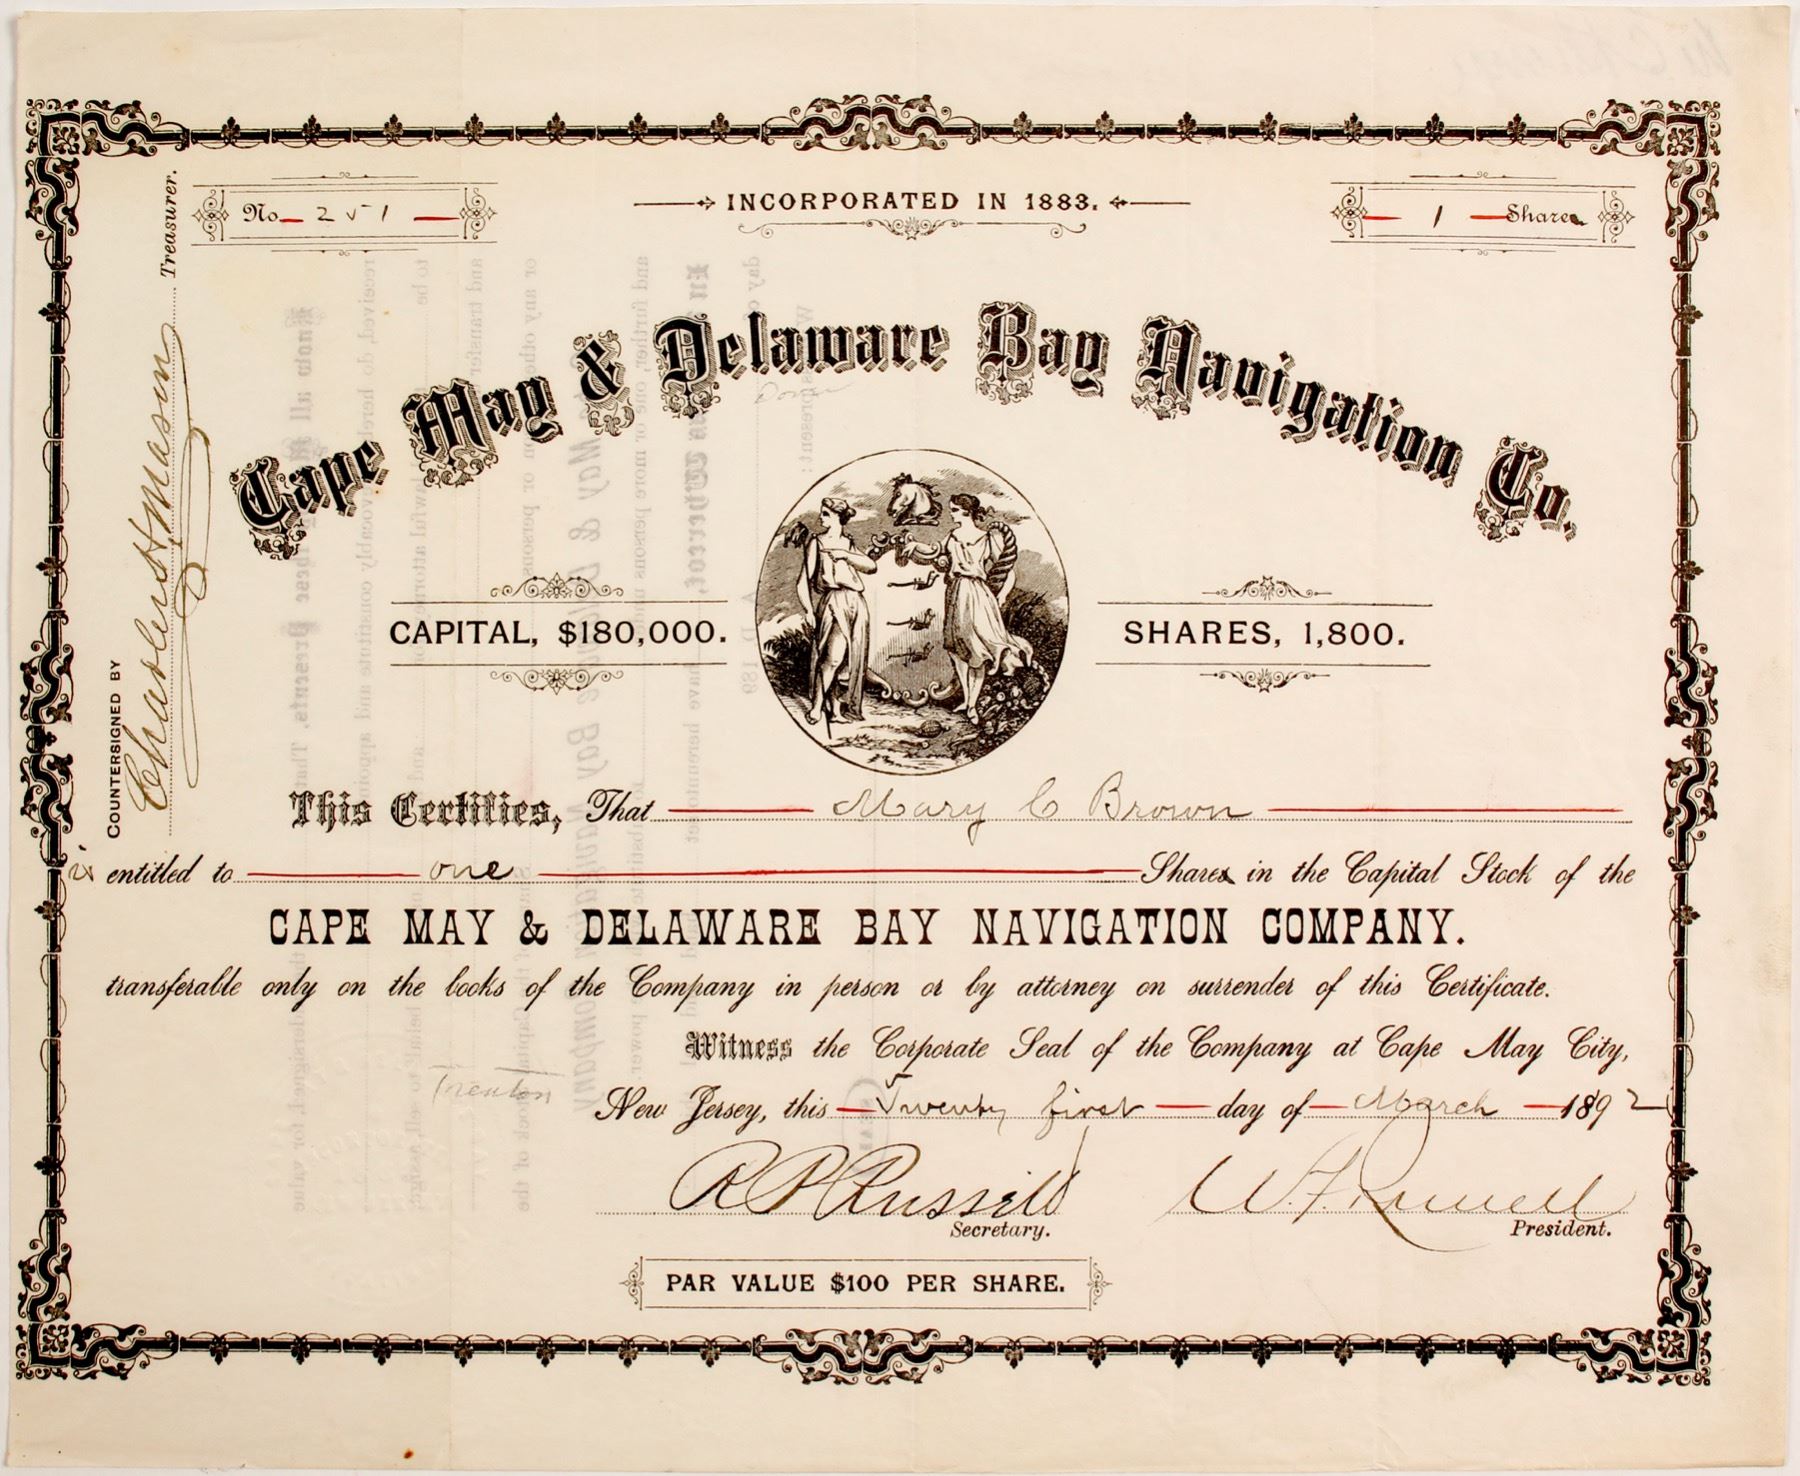 No. 251
INCORPORATED IN 1883.
1 Share
Cape May & Delaware Bay Navigation Co.
CAPITAL, $180,000.
SHARES, 1,800.
COUNTERSIGNED BY Charles H. Mason Treasurer.
This Certifies, That Mary C Brown
is entitled to one Shares in the Capital Stock of the
CAPE MAY & DELAWARE BAY NAVIGATION COMPANY.
transferable only on the books of the Company in person or by attorney on surrender of this Certificate.
Witness the Corporate Seal of the Company at Cape May City,
Trenton
New Jersey, this Twenty first day of March 1892
Secretary.
President.
PAR VALUE $100 PER SHARE.